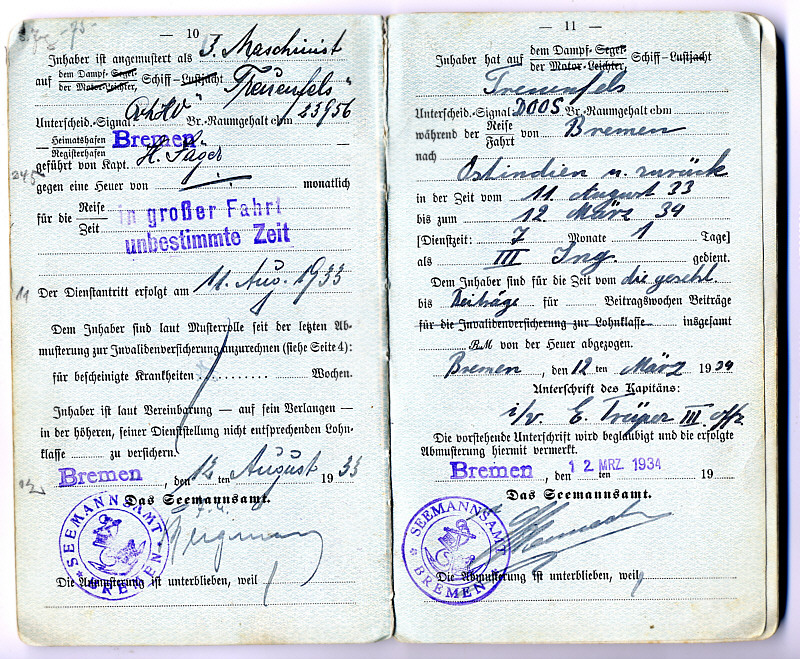 — 10 —
Inhaber ist angemustert als 3. Maschinist
auf dem Dampf- Segel- Schiff – Luftjacht "Treuenfels"
der Motor-Leichter,
Unterscheid.-Signal Br.-Raumgehalt cbm 23956
Heimatshafen Bremen
Registerhafen
geführt von Kapt. H. Jäger
gegen eine Heuer von monatlich
für die Reise in großer Fahrt
Zeit unbestimmte Zeit
Der Dienstantritt erfolgt am 11. Aug. 1933
Dem Inhaber sind laut Musterrolle seit der letzten Ab-
musterung zur Invalidenversicherung anzurechnen (siehe Seite 4):
für bescheinigte Krankheiten Wochen.
Inhaber ist laut Vereinbarung — auf sein Verlangen —
in der höheren, seiner Dienststellung nicht entsprechenden Lohn-
klasse zu versichern.
Bremen, den 12 ten August 1933
Das Seemannsamt.
SEEMANNSAMT BREMEN
Die Abmusterung ist unterblieben, weil
— 11 —
Inhaber hat auf dem Dampf- Segel- Schiff – Luftjacht
der Motor-Leichter,
Treuenfels
Unterscheid.-Signal DOOS Br.-Raumgehalt cbm
während der Reise von Bremen
Fahrt
nach
Ostindien u. zurück
in der Zeit vom 11. August 33
bis zum 12. März 34
[Dienstzeit: 7 Monate 1 Tage]
als III Ing. gedient.
Dem Inhaber sind für die Zeit vom die gesetzl.
bis Beiträge für Beitragswochen Beiträge
für die Invalidenversicherung zur Lohnklasse insgesamt
RM von der Heuer abgezogen.
Bremen, den 12 ten März 1934
Unterschrift des Kapitäns:
i/v. E. Trüper III. Offz.
Die vorstehende Unterschrift wird beglaubigt und die erfolgte
Abmusterung hiermit vermerkt.
Bremen, den 12 MRZ. 1934 ten 19
Das Seemannsamt.
SEEMANNSAMT BREMEN
Die Abmusterung ist unterblieben, weil